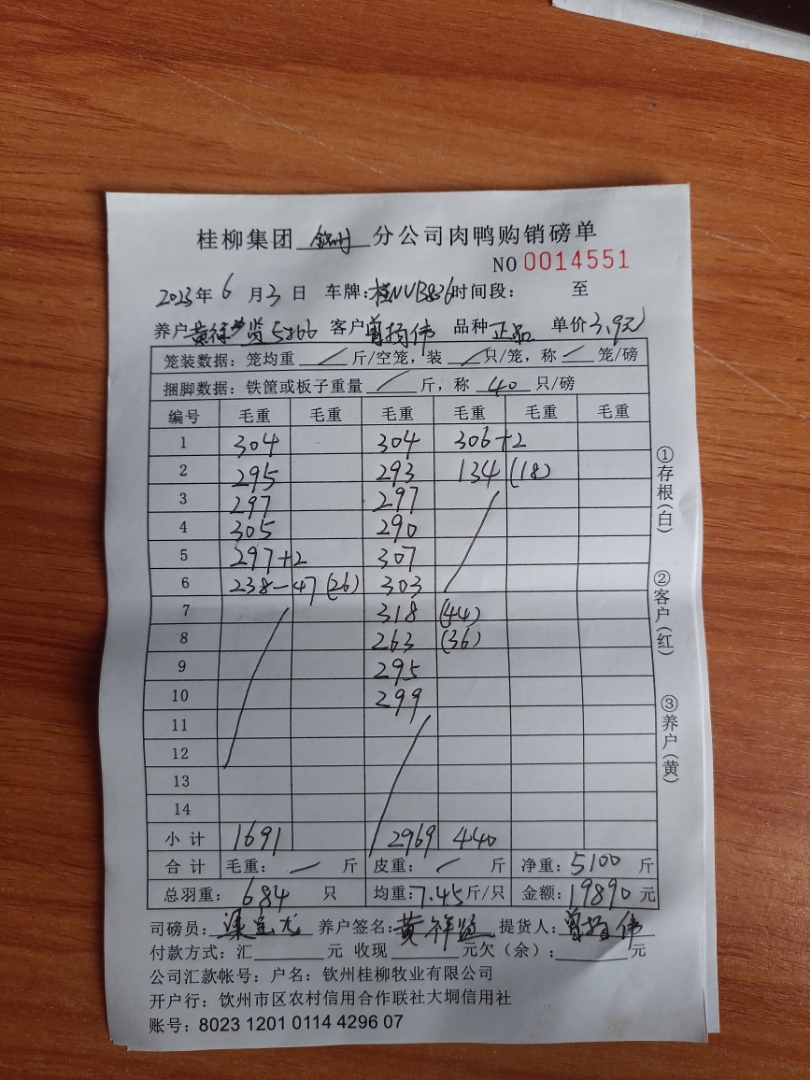 桂柳集团 钦州 分公司肉鸭购销磅单
NO 0014551
2023年 6 月 3 日 车牌:桂NVB836 时间段: 至
养户 黄祥 5266 客户 曾扬伟 品种 正品 单价 3.9元
笼装数据: 笼均重 / 斤/空笼, 装 / 只/笼, 称 / 笼/磅
捆脚数据: 铁筐或板子重量 / 斤, 称 40 只/磅
编号 毛重 毛重 毛重 毛重 毛重 毛重
1 304 304 306+2
2 295 293 134 (18)
3 297 297
4 305 290
5 297+2 307
6 238-47 (26) 303
7 318 (44)
8 263 (36)
9 295
10 299
11
12
13
14
小计 1691 2969 440
合计 毛重: / 斤 皮重: / 斤 净重: 5100 斤
总羽重: 684 只 均重: 7.45 斤/只 金额: 19890 元
司磅员: 养户签名: 黄祥 提货人: 曾扬伟
付款方式: 汇 元 收现 元欠(余): 元
公司汇款帐号: 户名: 钦州桂柳牧业有限公司
开户行: 钦州市区农村信用合作联社大垌信用社
账号: 8023 1201 0114 4296 07
①存根(白)
②客户(红)
③养户(黄)